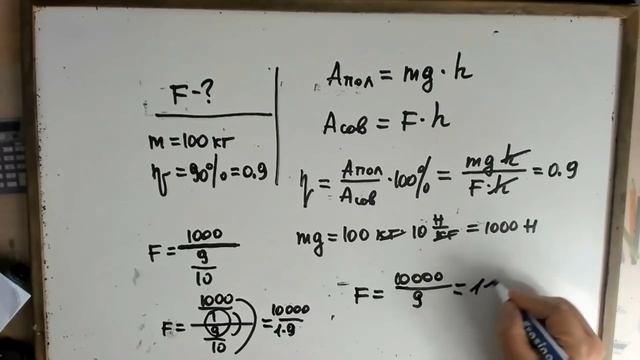 F-?
m=100 кг
η=90%=0.9
Aпол = mg·h
Aсов = F·h
η = Aпол/Aсов ·100% = mg h/F·h = 0.9
mg=100 кг · 10 Н/кг = 1000 Н
F = 1000/(9/10)
F = (1000/1)/(9/10) = 10000/1·9
F = 10000/9 = 1